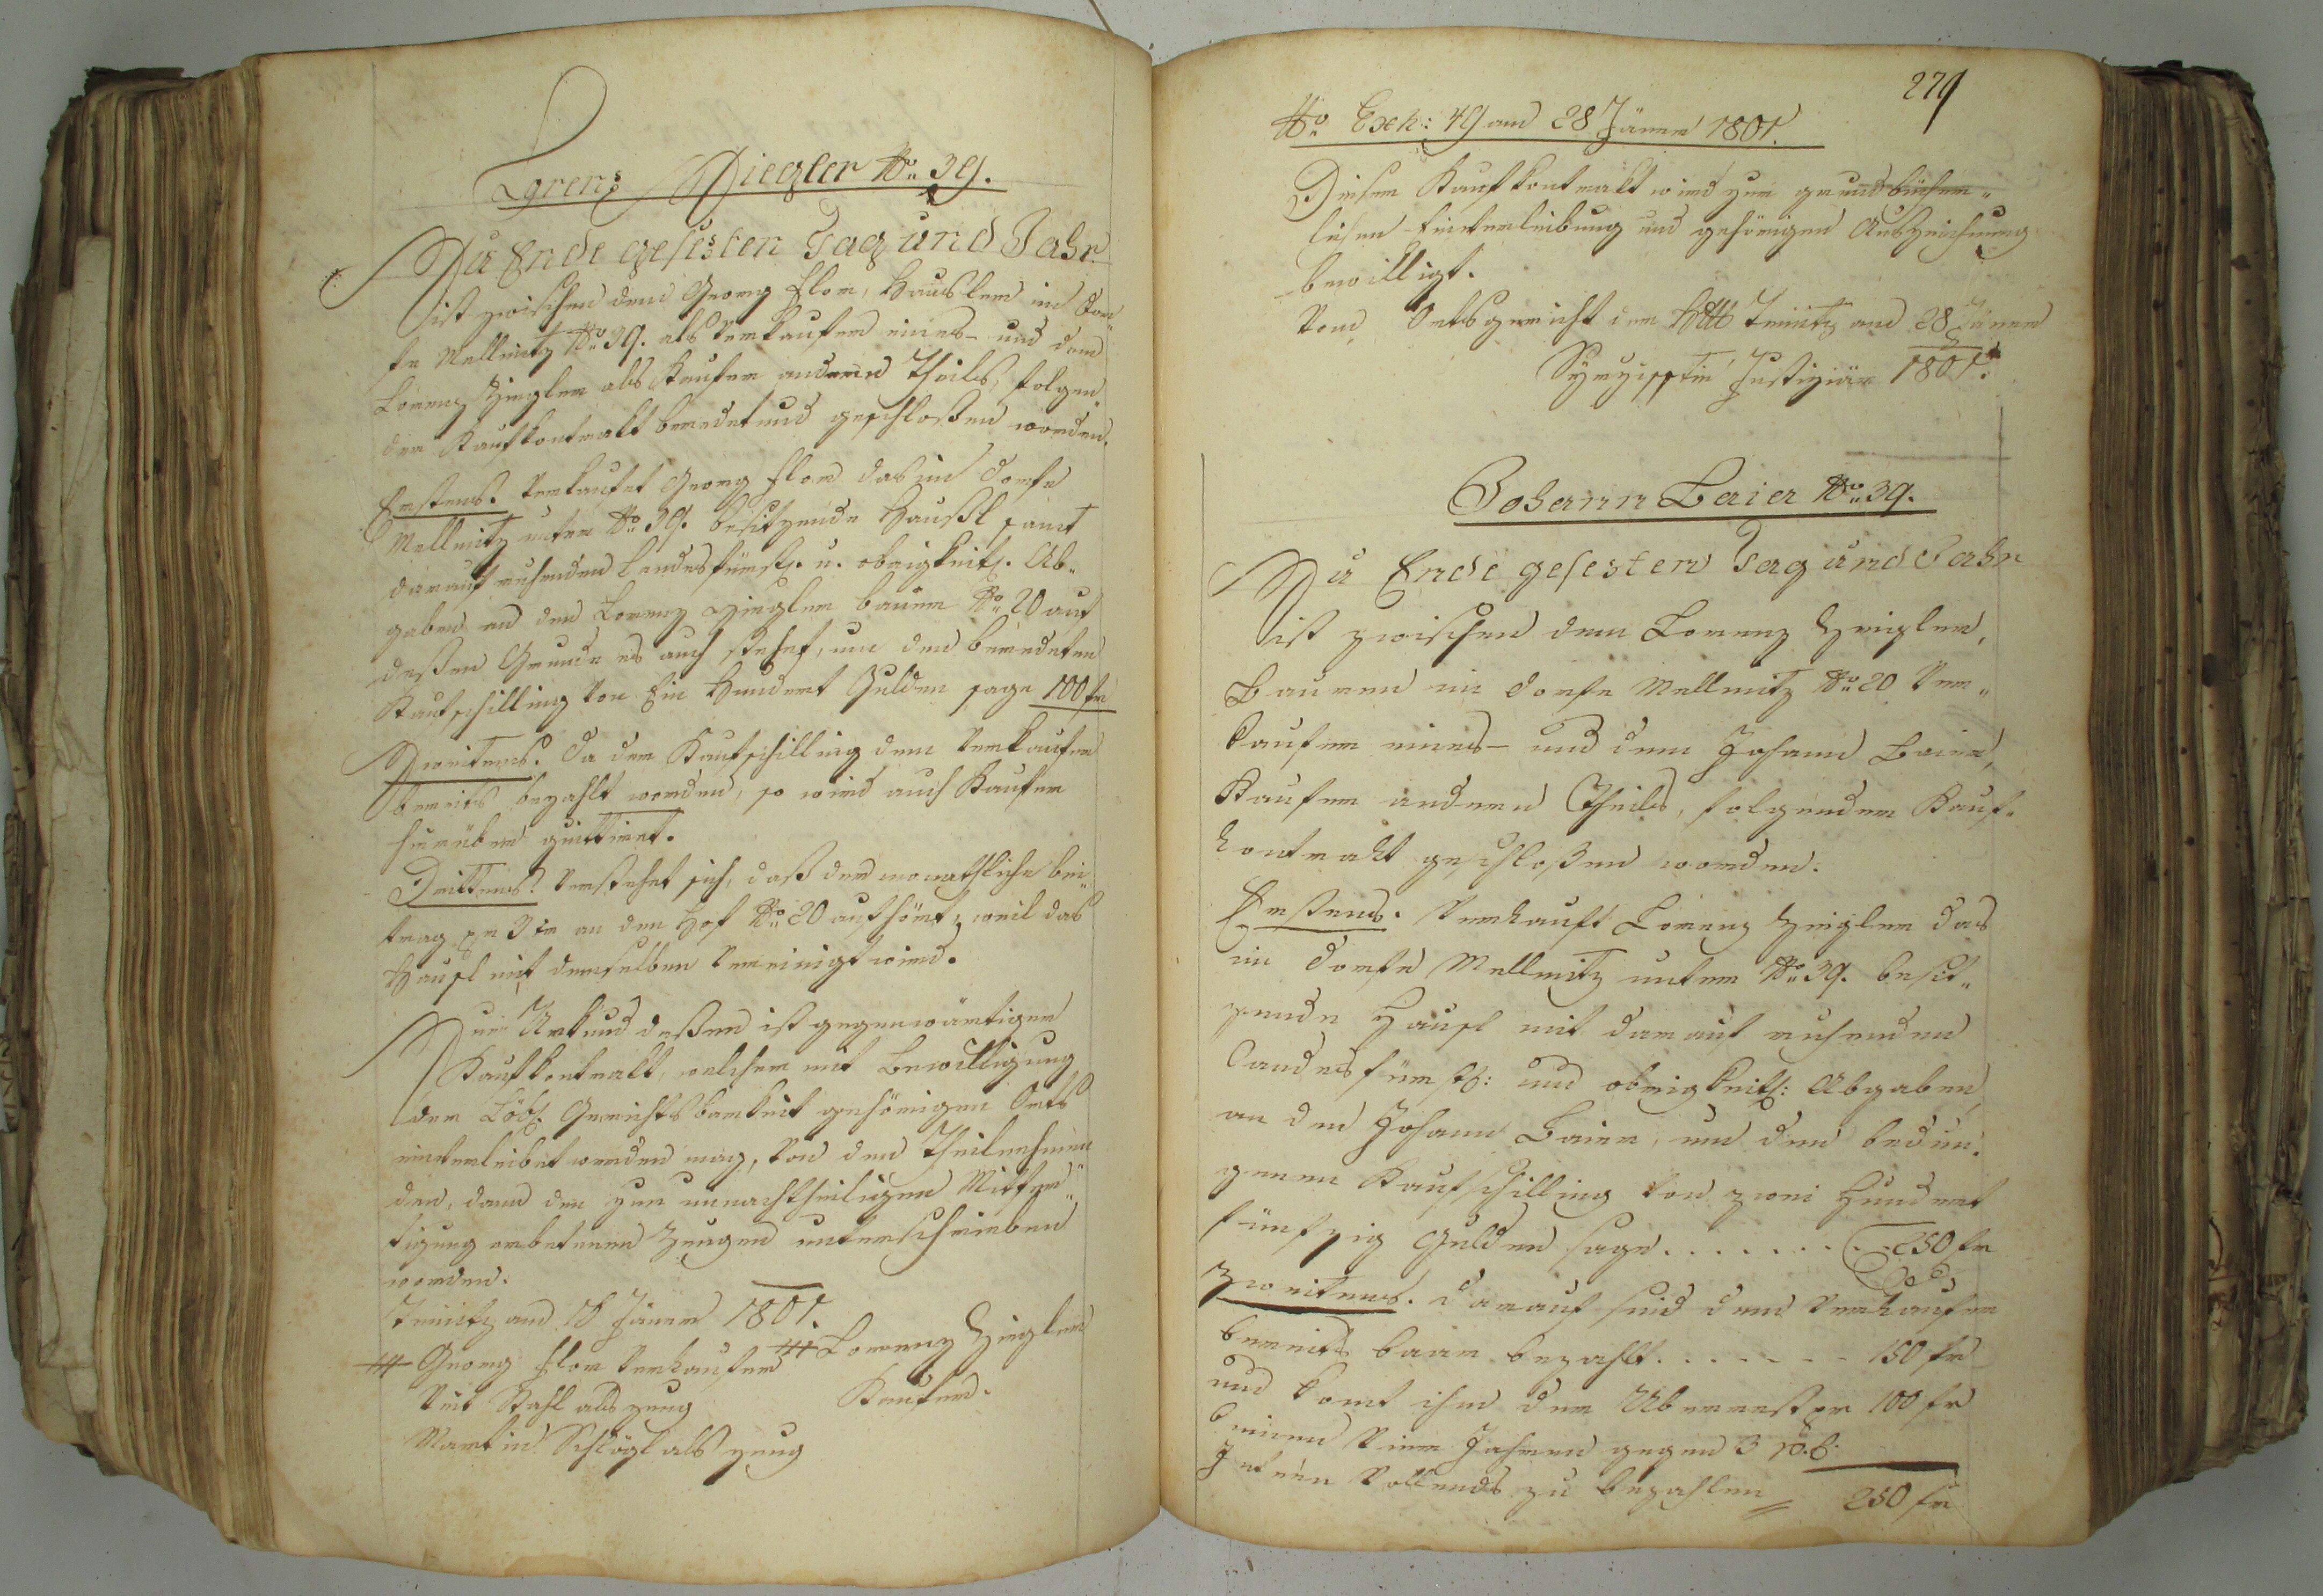 Lorenz Ziegler No: 39.
Zu Ende gesezten Tag und Jahr
ist zwischen dem Georg Flor, Hausler im Dor„
fe Mellnitz No: 39. als Verkaufer eines – und dem
Lorenz Ziegler als Kaufer anderen Theils, folgen„
der Kaufkontrakt beredet und geschloßen worden.
Erstens. Verkaufet Georg Flor das im Dorfe
Mellnitz unter No: 39. besitzende Haußl samt
darauf ruhenden landesfürstl. u. obrigkeitl. Ab„
gaben an den Lorenz Ziegler Bauer No: 20 auf
deßen Grunde es auch stehet, um den beredeten
Kaufschilling von Ein Hundert Gulden sage 100 fr
Zweitens. Da der Kaufschilling dem Verkaufer
bereits bezahlt worden, so wird auch Kaufer
hierüber quittiret.
Drittens. Verstehet sich, daß der monathliche Bei„
trag pr 3 xr an den Hof No: 20 aufhört, weil das
Hausl mit demselben vereinigt wird.
Zur Urkund deßen ist gegenwärtiger
Kaufkontrakt, welcher mit Bewilligung
der Löbl. Gerichtsbarkeit gehörigen Orts
einverleibet werden mag, von den Theilnehmen„
den, dann den zur unnachtheiligen Mitfer„
tigung erbetenen Zeugen unterschrieben
worden.
Teinitz am 18 Jäner 1801.
+++ Georg Flor Verkaufer +++ Lorenz Ziegler
Veit Stahl als Zeug Kaufer.
Martin Schlögl als Zeug
279
No: Exh: 49 am 28 Jäner 1801.
Dieser Kaufkontrakt wird zur grundbücher„
lichen Einverleibung und gehörigen Auszeichnung
bewilligt.
Vom Ortsgericht der Hft Teinitz am 28 Jäner
Justiziär 1801.
Johann Baier No: 39.
Zu Ende gesezten Tag und Jahr
ist zwischen dem Lorenz Zeigler,
Bauern im Dorfe Mellnitz No: 20 Ver„
kaufer eines – und dem Johann Baier,
Kaufer anderen Theils, folgender Kauf„
kontrakt geschloßen worden:
Erstens. Verkauft Lorenz Zeigler das
im Dorfe Mellnitz unter No: 39. besit„
zende Hausl mit darauf ruhenden
landesfürstl: und obrigkeitl: Abgaben,
an den Johann Baier, um den bedun„
genen Kaufschilling von zwei Hundert
fünfzig Gulden sage . . . . . . . . . 250 fr
Zweitens. Darauf sind dem Verkaufer
bereits baar bezahlt. . . . . . . 150 fr
und komt ihm der Überrest pr 100 fr
binnen vier Jahren gegen 3
vollends zu bezahlen = 250 fr